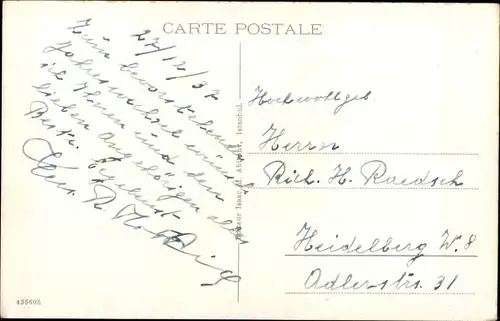 CARTE POSTALE
27/12/37
Zum bevorstehenden
Jahreswechsel wünsche
ich Ihnen und den
lieben Angehörigen alles
Beste. Ergebenst
Hochwohlgeb.
Herrn
Rich. H. Raedsch
Heidelberg W. 8
Adlerstr. 31
Isaac M. Istanbul.
435605